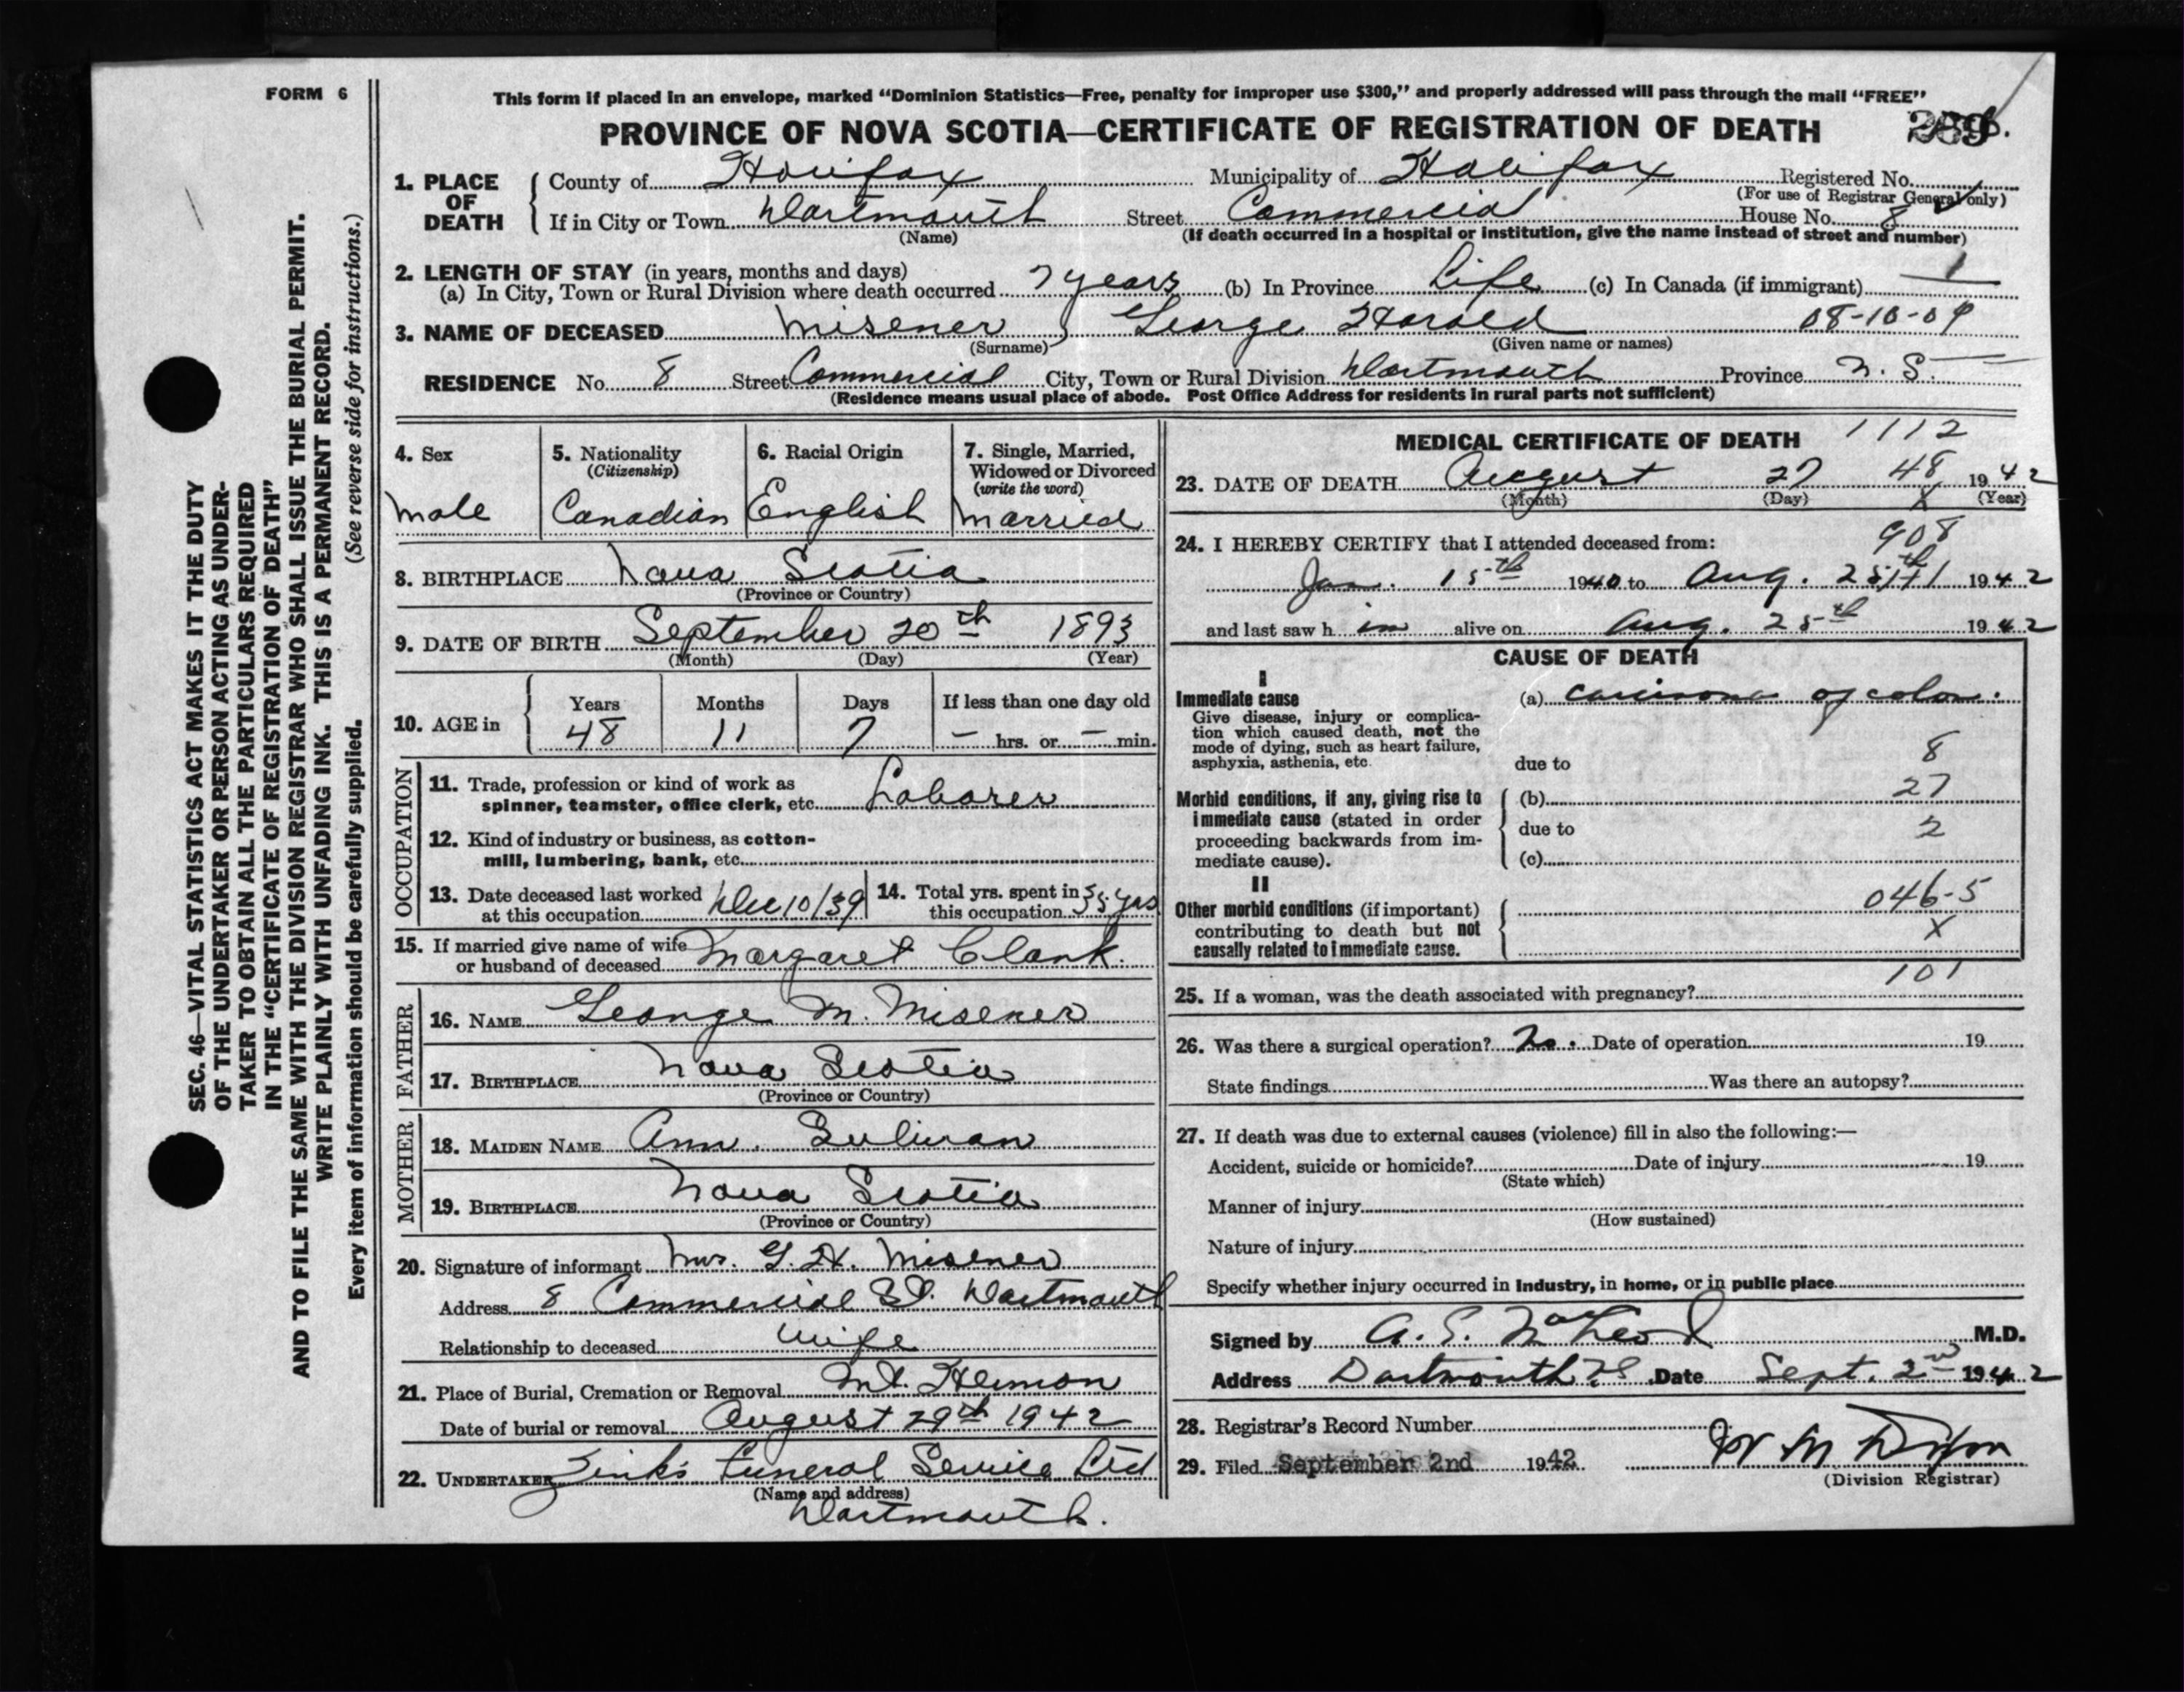 FORM 6
This form if placed in an envelope, marked “Dominion Statistics—Free, penalty for improper use $300,” and properly addressed will pass through the mail “FREE”
PROVINCE OF NOVA SCOTIA—CERTIFICATE OF REGISTRATION OF DEATH
1. PLACE OF DEATH
County of Halifax Municipality of Halifax Registered No.
(For use of Registrar General only)
If in City or Town Dartmouth Street Commercial House No. 8
(Name) (If death occurred in a hospital or institution, give the name instead of street and number)
2. LENGTH OF STAY (in years, months and days)
(a) In City, Town or Rural Division where death occurred 7 years (b) In Province Life (c) In Canada (if immigrant)
3. NAME OF DECEASED Misener, George Harold 08-10-09
(Surname) (Given name or names)
RESIDENCE No. 8 Street Commercial City, Town or Rural Division Dartmouth Province N. S.
(Residence means usual place of abode. Post Office Address for residents in rural parts not sufficient)
4. Sex
male
5. Nationality
(Citizenship)
Canadian
6. Racial Origin
English
7. Single, Married,
Widowed or Divorced
(write the word)
Married
8. BIRTHPLACE Nova Scotia
(Province or Country)
9. DATE OF BIRTH September 20th 1893
(Month) (Day) (Year)
10. AGE in
Years Months Days If less than one day old
48 11 7 – hrs. or – min.
OCCUPATION
11. Trade, profession or kind of work as
spinner, teamster, office clerk, etc. Laborer
12. Kind of industry or business, as cotton-
mill, lumbering, bank, etc.
13. Date deceased last worked
at this occupation Dec 10/39
14. Total yrs. spent in
this occupation 35 yrs
15. If married give name of wife
or husband of deceased Margaret Clark.
FATHER
16. NAME George M. Misener
17. BIRTHPLACE Nova Scotia
(Province or Country)
MOTHER
18. MAIDEN NAME Ann. Sulivan
19. BIRTHPLACE Nova Scotia
(Province or Country)
20. Signature of informant Mrs. G. H. Misener
Address 8 Commercial St. Dartmouth
Relationship to deceased wife
21. Place of Burial, Cremation or Removal Mt. Hermon
Date of burial or removal August 29th 1942
22. UNDERTAKER Zink's Funeral Service Ltd
(Name and address)
Dartmouth.
MEDICAL CERTIFICATE OF DEATH 1112
23. DATE OF DEATH August 27 48 1942
(Month) (Day) (Year)
X
24. I HEREBY CERTIFY that I attended deceased from: 908
Jan. 15th 1940 to Aug. 25th 1942
and last saw h im alive on Aug. 25th 1942
CAUSE OF DEATH
I
Immediate cause (a) carcinoma of colon.
Give disease, injury or complica-
tion which caused death, not the
mode of dying, such as heart failure,
asphyxia, asthenia, etc.
due to 8
Morbid conditions, if any, giving rise to
immediate cause (stated in order
proceeding backwards from im-
mediate cause).
(b) 27
due to 2
(c)
II
Other morbid conditions (if important)
contributing to death but not
causally related to immediate cause.
046-5
X
101
25. If a woman, was the death associated with pregnancy?
26. Was there a surgical operation? No. Date of operation 19
State findings Was there an autopsy?
27. If death was due to external causes (violence) fill in also the following:—
Accident, suicide or homicide? Date of injury 19
(State which)
Manner of injury
(How sustained)
Nature of injury
Specify whether injury occurred in Industry, in home, or in public place
Signed by A. S. McLeod M.D.
Address Dartmouth N.S. Date Sept. 2nd 1942
28. Registrar's Record Number
29. Filed September 2nd 1942
(Division Registrar)
SEC. 46—VITAL STATISTICS ACT MAKES IT THE DUTY
OF THE UNDERTAKER OR PERSON ACTING AS UNDER-
TAKER TO OBTAIN ALL THE PARTICULARS REQUIRED
IN THE “CERTIFICATE OF REGISTRATION OF DEATH”
AND TO FILE THE SAME WITH THE DIVISION REGISTRAR WHO SHALL ISSUE THE BURIAL PERMIT.
WRITE PLAINLY WITH UNFADING INK. THIS IS A PERMANENT RECORD.
Every item of information should be carefully supplied. (See reverse side for instructions.)